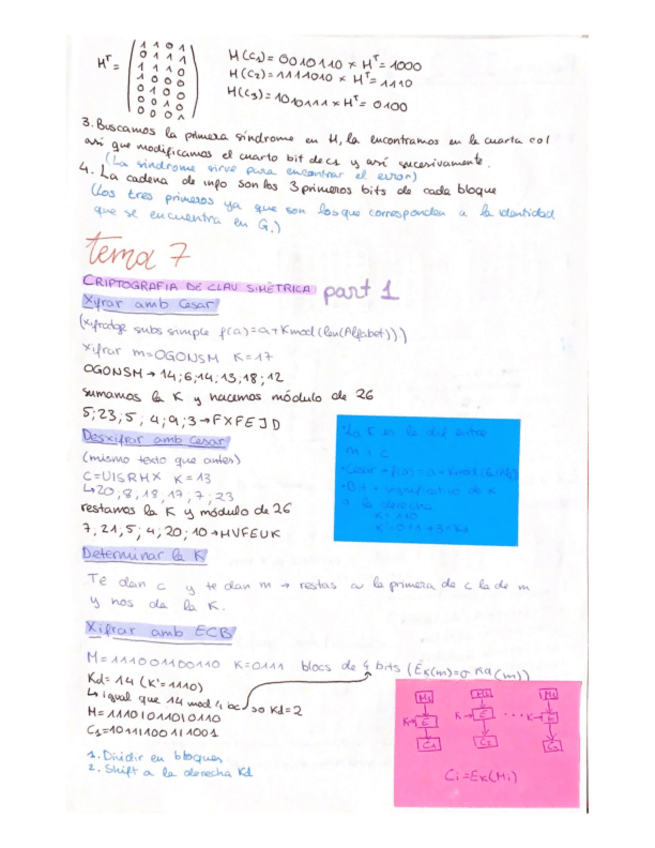 Hᵀ =
1 1 0 1
0 1 1 1
1 1 1 0
1 0 0 0
0 1 0 0
0 0 1 0
0 0 0 1
H(C₁) = 0010110 × Hᵀ = 1000
H(C₂) = 1111010 × Hᵀ = 1110
H(C₃) = 1010111 × Hᵀ = 0100
3. Buscamos la primera síndrome en H, la encontramos en la cuarta col
así que modificamos el cuarto bit de c1 y así sucesivamente.
(La síndrome sirve para encontrar el error)
4. La cadena de info son los 3 primeros bits de cada bloque
(Los tres primeros ya que son los que corresponden a la identidad
que se encuentra en G.)
tema 7
CRIPTOGRAFIA DE CLAU SIMÈTRICA part 1
Xifrar amb Cesar
(xifratge subs simple f(a)=a+Kmod(len(Alfabet)))
Xifrar m=OGONSM K=17
OGONSM → 14;6;14;13;18;12
sumamos la K y hacemos módulo de 26
5;23;5; 4;9;3 → FXFEJD
Desxifrar amb Cesar
(mismo texto que antes)
C=UISRHX K=13
↳ 20;8;18;17;7;23
restamos la K y módulo de 26
7,21;5;4;20;10 → HVFEUK
• La K es la dif entre
m i c
• Cesar → f(a) = a + Kmod
• Bit + significativo de K
a la derecha
K = 110
Determinar la K
Te dan c y te dan m → restas a la primera de c la de m
y nos da la K.
Xifrar amb ECB
M=111001100110 K=0111 blocs de 4 bits (EK(m)=σ Kd(m))
Kd= 14 (K'=1110)
↳ igual que 14 mod 4 bc so Kd=2
M=1110|0110|0110
C₁=1011|1001|1001
1. Dividir en bloques
2. Shift a la derecha Kd
M₁ M₂ M₃
K→ E K→ E ... K→ E
C₁ C₂ C₃
Ci = EK(Mi)